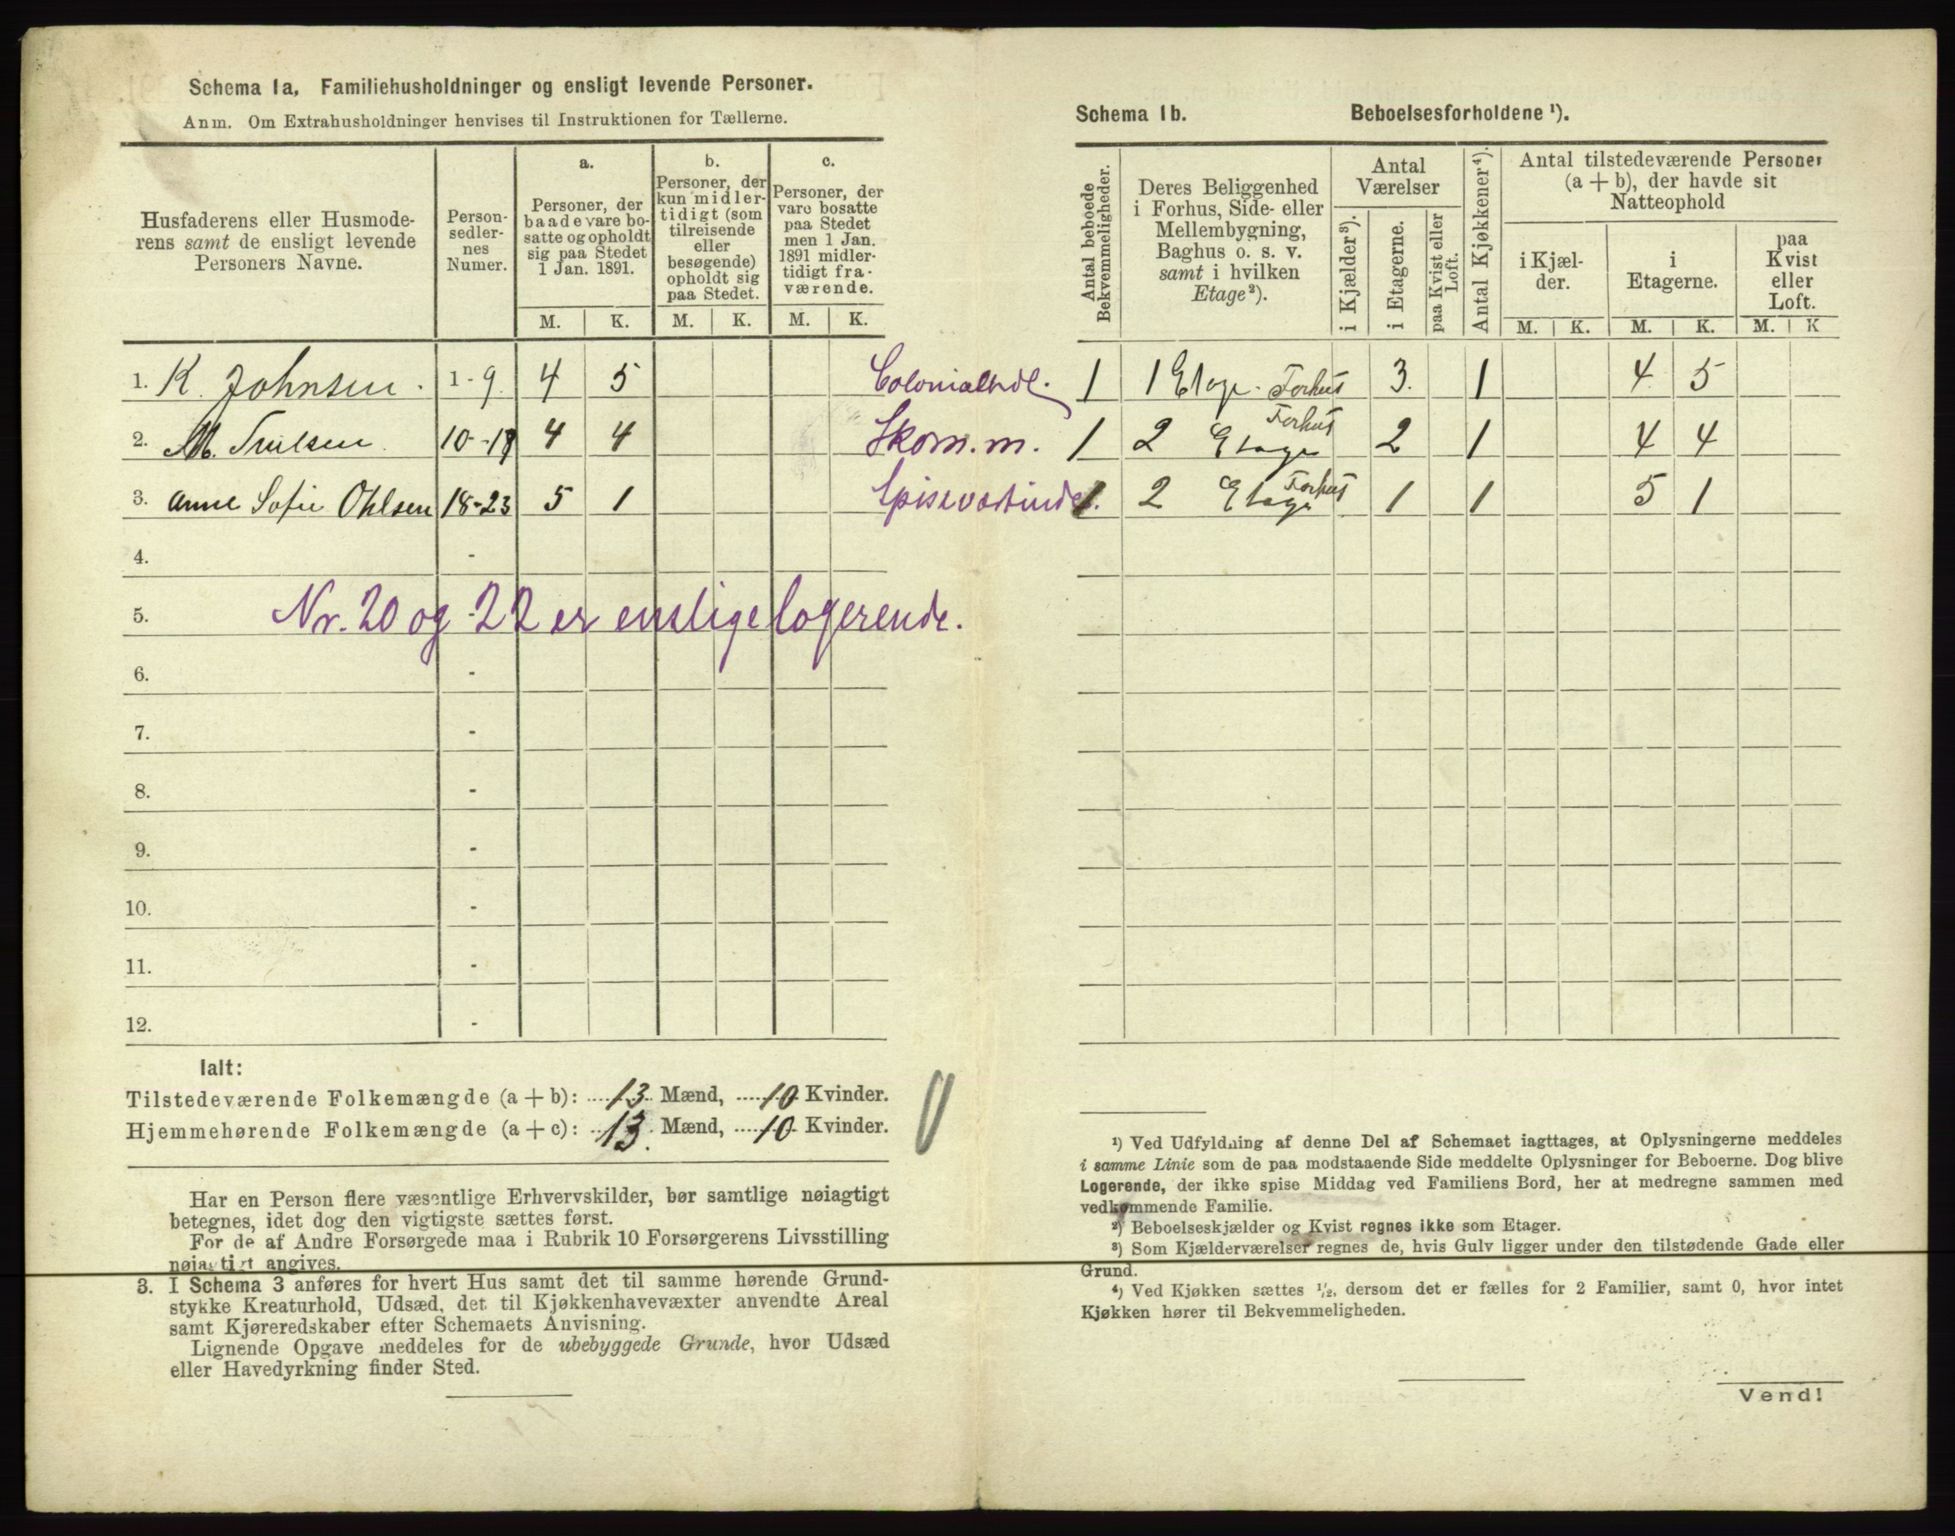 Schema 1a. Familiehusholdninger og ensligt levende Personer.
Anm. Om Extrahusholdninger henvises til Instruktionen for Tællerne.
Husfaderens eller Husmode-
rens samt de ensligt levende
Personers Navne.
Person-
sedler-
nes
Numer.
a.
Personer, der
baade vare bo-
satte og opholdt
sig paa Stedet
1 Jan. 1891.
b.
Personer, der
kun midler-
tidigt (som
tilreisende
eller
besøgende)
opholdt sig
paa Stedet.
c.
Personer, der
vare bosatte
paa Stedet
men 1 Jan.
1891 midler-
tidigt fra-
værende.
M. K. M. K. M. K.
1. K. Johnsen. 1-9. 4 5 Colonialhdl.
2. M. Trulsen. 10-17 4 4 Skom.m.
3. Anne Sofie Ohlsen 18-23 5 1 Spisevertinde.
4. -
5. Nr. 20 og 22 er enslige logerende.
6. -
7. -
8. -
9. -
10. -
11. -
12. -
Ialt:
Tilstedeværende Folkemængde (a + b): 13 Mænd, 10 Kvinder.
Hjemmehørende Folkemængde (a + c): 13. Mænd, 10 Kvinder.
Har en Person flere væsentlige Erhvervskilder, bør samtlige nøiagtigt
betegnes, idet dog den vigtigste sættes først.
For de af Andre Forsørgede maa i Rubrik 10 Forsørgerens Livsstilling
nøiagtigt angives.
3. I Schema 3 anføres for hvert Hus samt det til samme hørende Grund-
stykke Kreaturhold, Udsæd, det til Kjøkkenhavevæxter anvendte Areal
samt Kjøreredskaber efter Schemaets Anvisning.
Lignende Opgave meddeles for de ubebyggede Grunde, hvor Udsæd
eller Havedyrkning finder Sted.
Schema 1b. Beboelsesforholdene ¹).
Antal beboede
Bekvemmeligheder.
Deres Beliggenhed
i Forhus, Side- eller
Mellembygning,
Baghus o. s. v.
samt i hvilken
Etage²).
Antal
Værelser
i Kjælder³).
i Etagerne.
paa Kvist eller
Loft.
Antal Kjøkkener⁴).
Antal tilstedeværende Personer
(a + b), der havde sit
Natteophold
i Kjæl-
der.
i
Etagerne.
paa
Kvist
eller
Loft.
M. K. M. K. M. K
1 1 Etage. Forhus 3. 1 4 5
1 2 Etage Forhus 2 1 4 4
1. 2 Etage Forhus 1 1 5 1
¹) Ved Udfyldning af denne Del af Schemaet iagttages, at Oplysningerne meddeles
i samme Linie som de paa modstaaende Side meddelte Oplysninger for Beboerne. Dog blive
Logerende, der ikke spise Middag ved Familiens Bord, her at medregne sammen med
vedkommende Familie.
²) Beboelseskjælder og Kvist regnes ikke som Etager.
³) Som Kjælderværelser regnes de, hvis Gulv ligger under den tilstødende Gade eller
Grund.
⁴) Ved Kjøkken sættes ½, dersom det er fælles for 2 Familier, samt 0, hvor intet
Kjøkken hører til Bekvemmeligheden.
Vend!